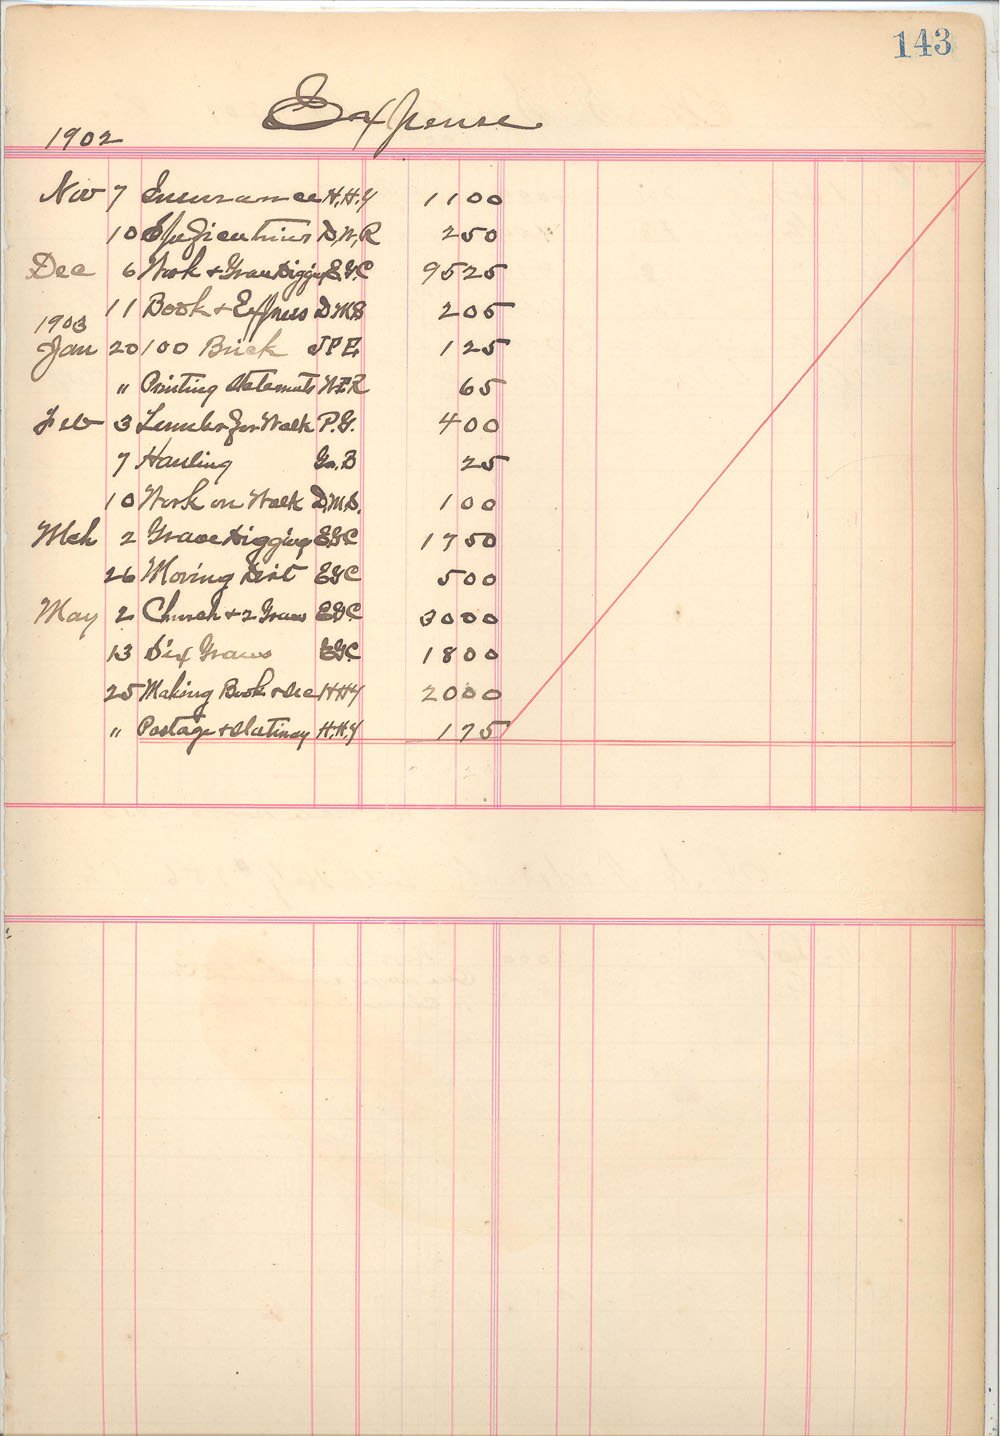 143
Expense
1902
Nov 7 Insurance H.H.Y 11 00
10 Specifications D.W.R 2 50
Dec 6 Work & Grave Digging E.G.C 95 25
11 Book & Express D.M.B 2 05
1903
Jan 20 100 Brick J.P.E. 1 25
" Printing Statements 65
Feb 3 Lumber for Walk P.G. 4 00
7 Hauling Geo. B 25
10 Work on Walk D.M.B. 1 00
Mch 2 Grave Digging EGC 17 50
26 Moving Dirt EGC 5 00
May 2 Church & 2 Graves EGC 30 00
13 Six Graves EGC 18 00
25 Making Book & Dec HHY 20 00
" Postage & Statinary H.H.Y 1 75